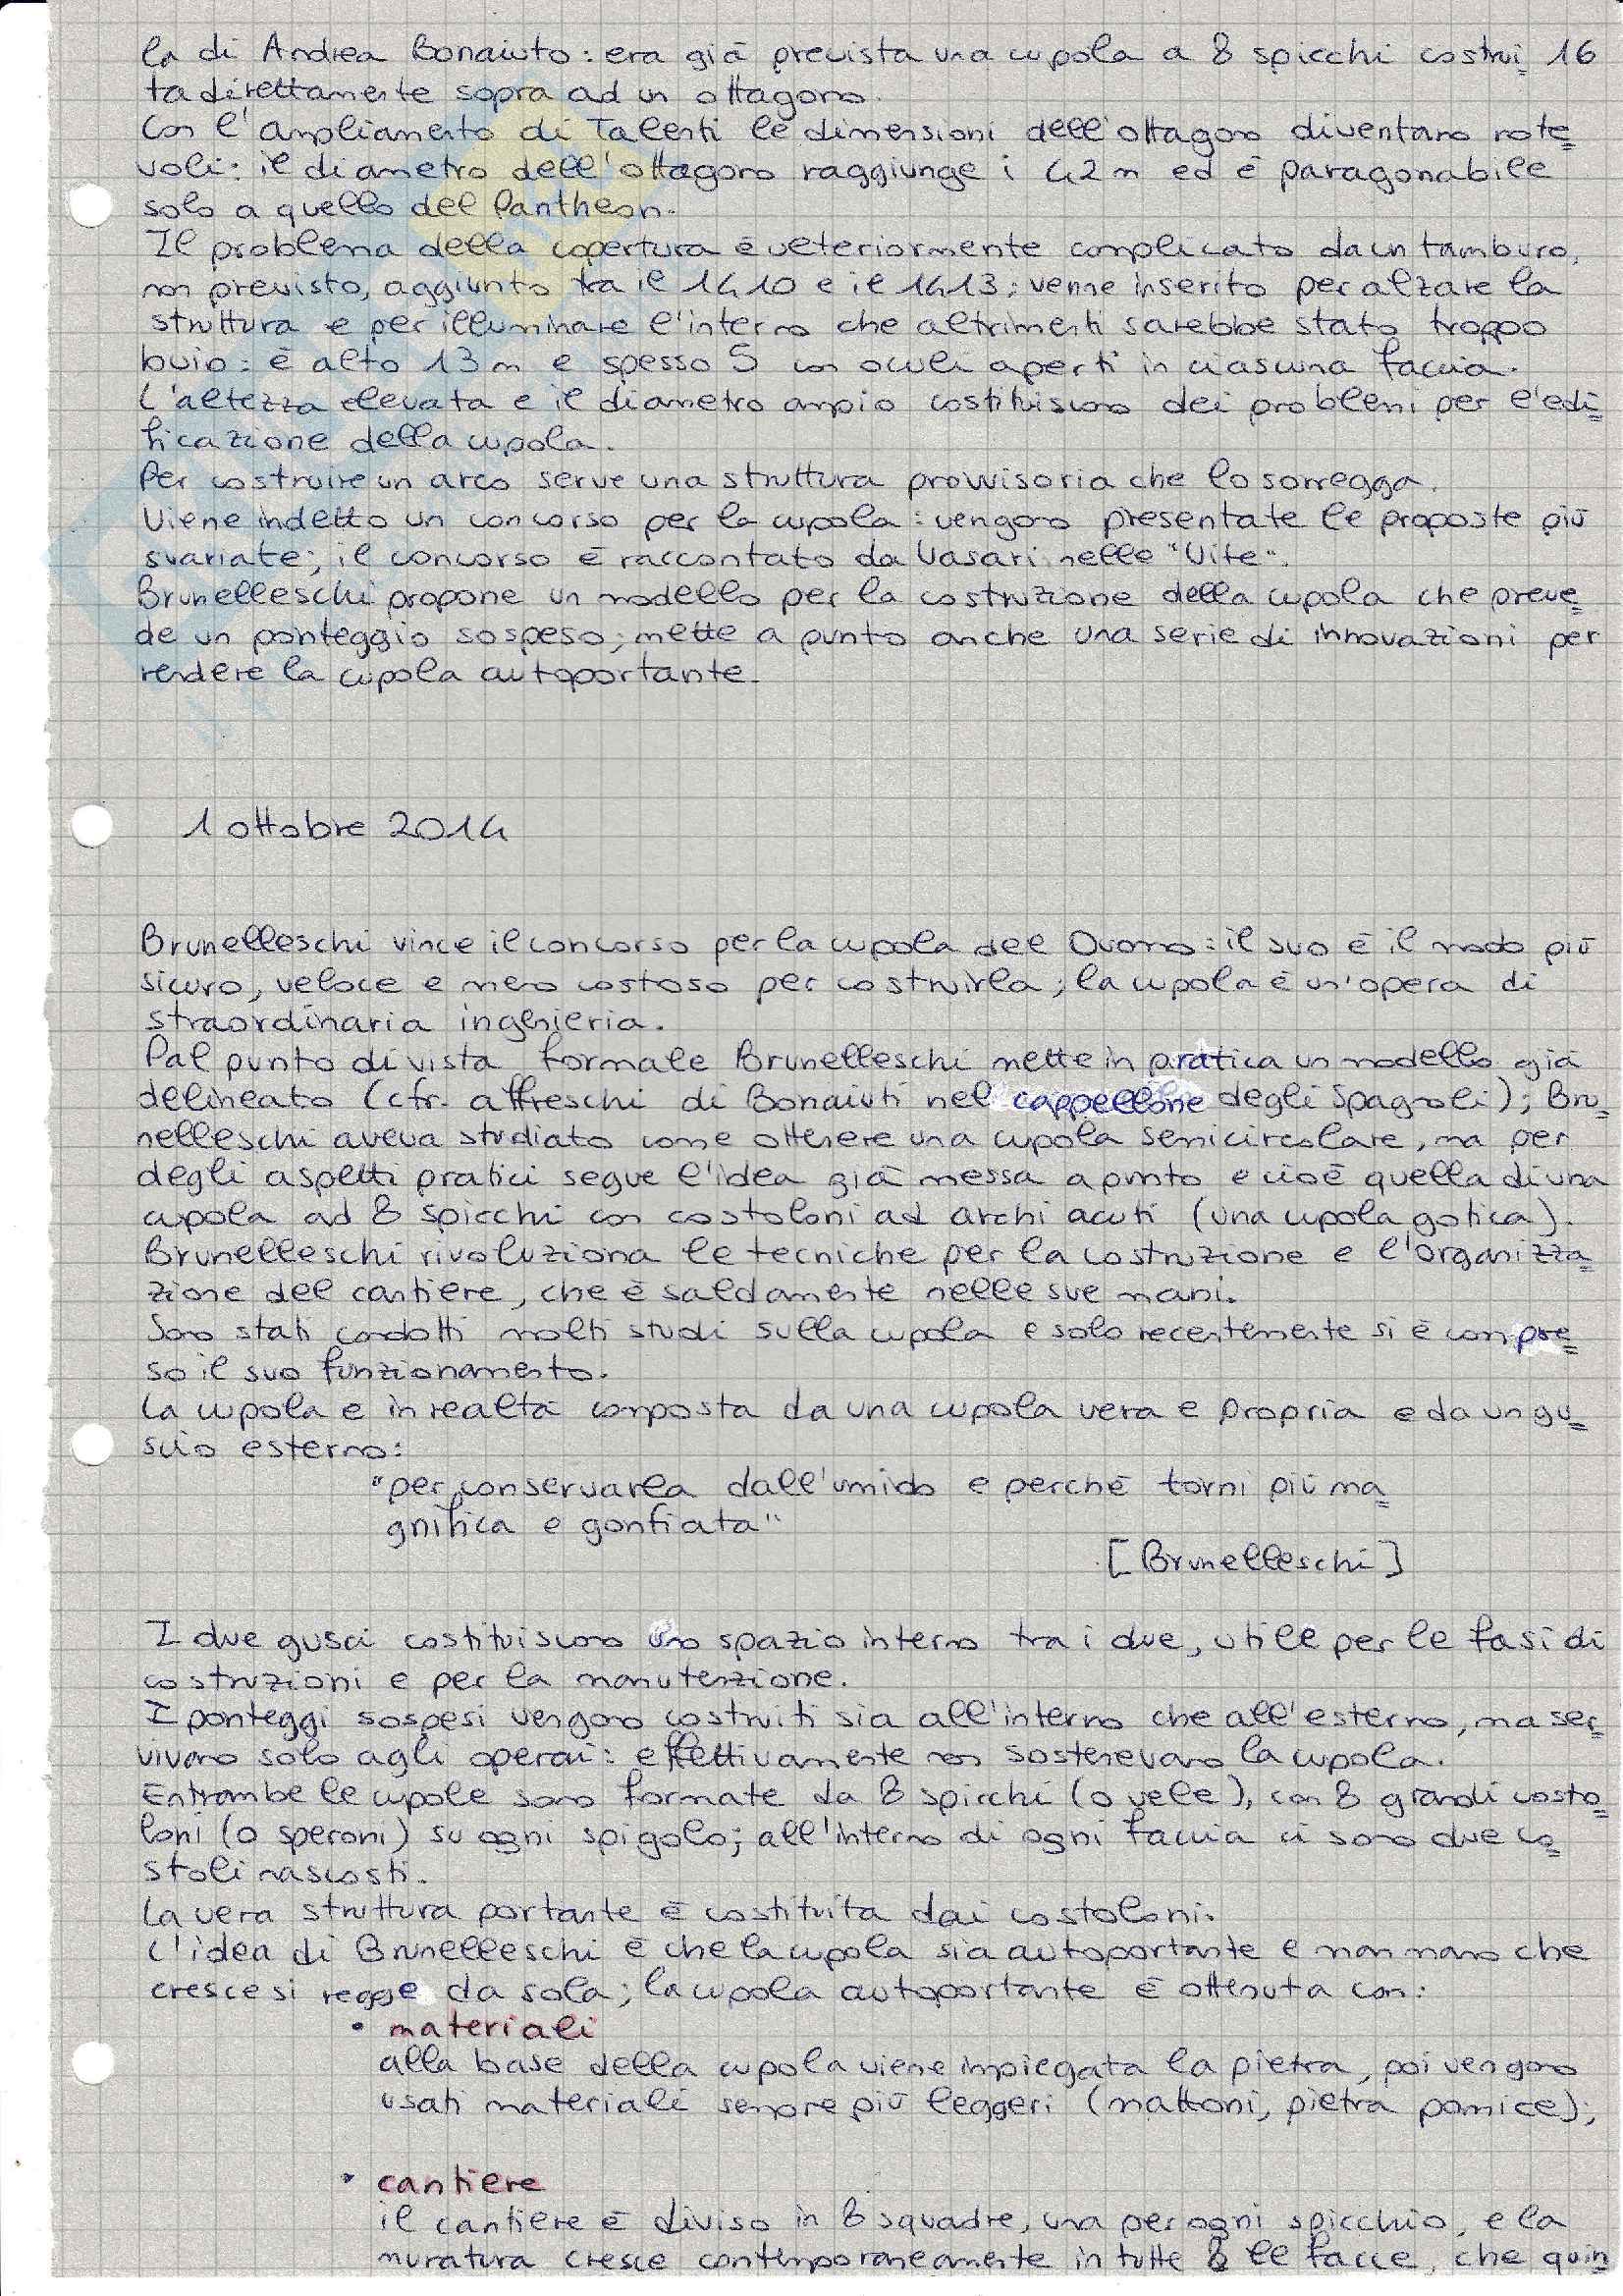 la di Andrea Bonaiuto: era già prevista una cupola a 8 spicchi costrui= 16
ta direttamente sopra ad un ottagono.
Con l'ampliamento di Talenti le dimensioni dell'ottagono diventano note=
voli: il diametro dell'ottagono raggiunge i 42 m ed è paragonabile
solo a quello del Pantheon.
Il problema della copertura è ulteriormente complicato da un tamburo,
non previsto, aggiunto tra il 1410 e il 1413; venne inserito per alzare la
struttura e per illuminare l'interno che altrimenti sarebbe stato troppo
buio: è alto 13 m e spesso 5 con oculi aperti in ciascuna faccia.
L'altezza elevata e il diametro ampio costituiscono dei problemi per l'edi=
ficazione della cupola.
Per costruire un arco serve una struttura provvisoria che lo sorregga.
Viene indetto un concorso per la cupola: vengono presentate le proposte più
svariate; il concorso è raccontato da Vasari nelle "Vite".
Brunelleschi propone un modello per la costruzione della cupola che preve=
de un ponteggio sospeso; mette a punto anche una serie di innovazioni per
rendere la cupola autoportante.
1 ottobre 2014
Brunelleschi vince il concorso per la cupola del Duomo: il suo è il modo più
sicuro, veloce e meno costoso per costruirla; la cupola è un'opera di
straordinaria ingenieria.
Dal punto di vista formale Brunelleschi mette in pratica un modello già
delineato (cfr. affreschi di Bonaiuti nel cappellone degli Spagnoli); Bru=
nelleschi aveva studiato come ottenere una cupola semicircolare, ma per
degli aspetti pratici segue l'idea già messa a punto e cioè quella di una
cupola ad 8 spicchi con costoloni ad archi acuti (una cupola gotica).
Brunelleschi rivoluziona le tecniche per la costruzione e l'organizza=
zione del cantiere, che è saldamente nelle sue mani.
Sono stati condotti molti studi sulla cupola e solo recentemente si è compre=
so il suo funzionamento.
La cupola è in realtà composta da una cupola vera e propria e da un gu=
scio esterno:
"per conservarla dall'umido e perché torni più ma=
gnifica e gonfiata"
[Brunelleschi]
I due gusci costituiscono uno spazio interno tra i due, utile per le fasi di
costruzioni e per la manutenzione.
I ponteggi sospesi vengono costruiti sia all'interno che all'esterno, ma ser=
vivano solo agli operai: effettivamente non sostenevano la cupola.
Entrambe le cupole sono formate da 8 spicchi (o vele), con 8 grandi costo=
loni (o speroni) su ogni spigolo; all'interno di ogni faccia ci sono due co=
stoli nascosti.
La vera struttura portante è costituita dai costoloni.
L'idea di Brunelleschi è che la cupola sia autoportante e man mano che
cresce si regge da sola; la cupola autoportante è ottenuta con:
• materiali
alla base della cupola viene impiegata la pietra, poi vengono
usati materiali sempre più leggeri (mattoni, pietra pomice);
• cantiere
il cantiere è diviso in 8 squadre, una per ogni spicchio, e la
muratura cresce contemporaneamente in tutte 8 le facce, che quin